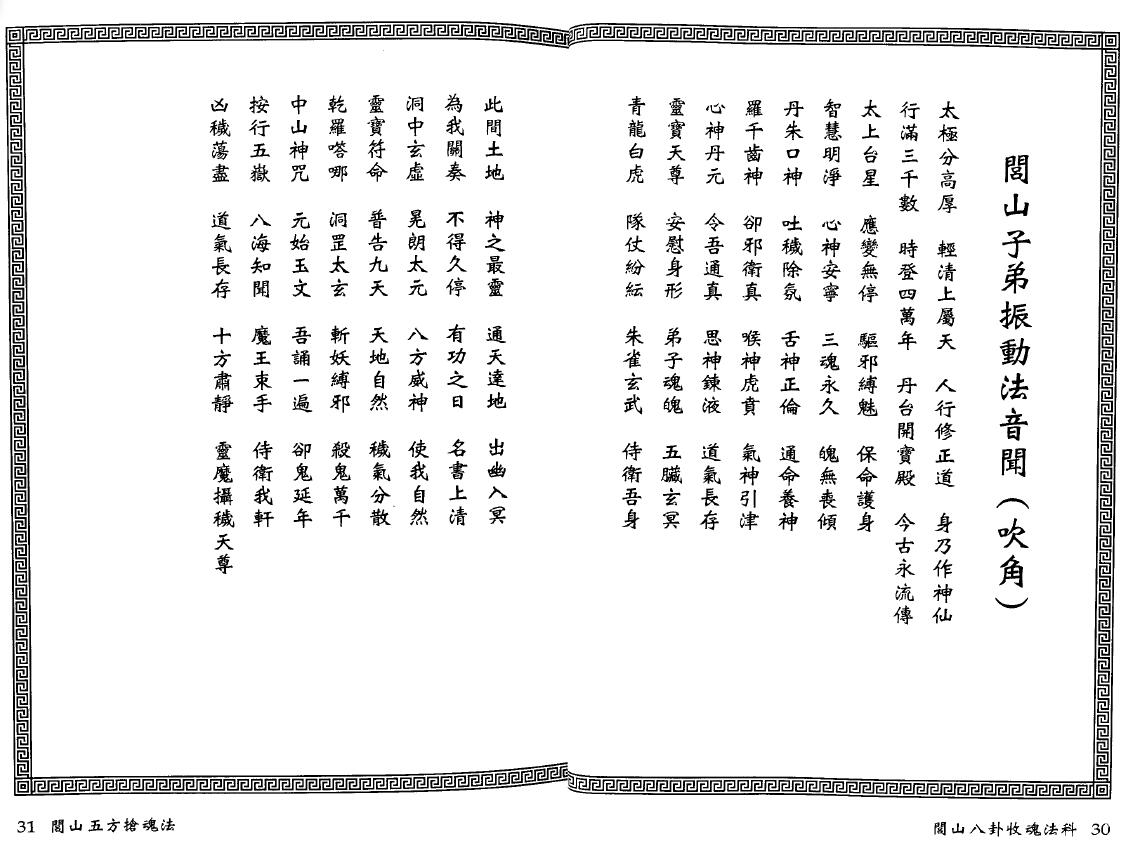 閭山子弟振動法音聞（吹角）
太極分高厚 輕清上屬天 人行修正道 身乃作神仙
行滿三千數 時登四萬年 丹台開寶殿 今古永流傳
太上台星 應變無停 驅邪縛魅 保命護身
智慧明淨 心神安寧 三魂永久 魄無喪傾
丹朱口神 吐穢除氛 舌神正倫 通命養神
羅千齒神 卻邪衛真 喉神虎賁 氣神引津
心神丹元 令吾通真 思神鍊液 道氣長存
靈寶天尊 安慰身形 弟子魂魄 五臟玄冥
青龍白虎 隊仗紛紜 朱雀玄武 侍衛吾身
閭山八卦收魂法科 30
此間土地 神之最靈 通天達地 出幽入冥
為我關奏 不得久停 有功之日 名書上清
洞中玄虛 晃朗太元 八方威神 使我自然
靈寶符命 普告九天 天地自然 穢氣分散
乾羅嗒哪 洞罡太玄 斬妖縛邪 殺鬼萬千
中山神咒 元始玉文 吾誦一遍 卻鬼延年
按行五嶽 八海知聞 魔王束手 侍衛我軒
凶穢蕩盡 道氣長存 十方肅靜 靈魔攝穢天尊
31 閭山五方搶魂法